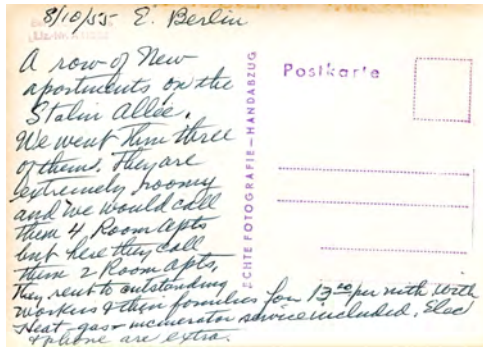 8/10/55 E. Berlin
A row of New
apartments on the
Stalin Allée.
We went thru three
of them. They are
extremely roomy
and we would call
them 4 Room Apts
but here they call
them 2 Room apts.
They rent to outstanding
workers & their families for 13.20 per mth with
Heat-gas & incinerator service included. Elec
& phone are extra.
Postkarte
ECHTE FOTOGRAFIE – HANDABZUG